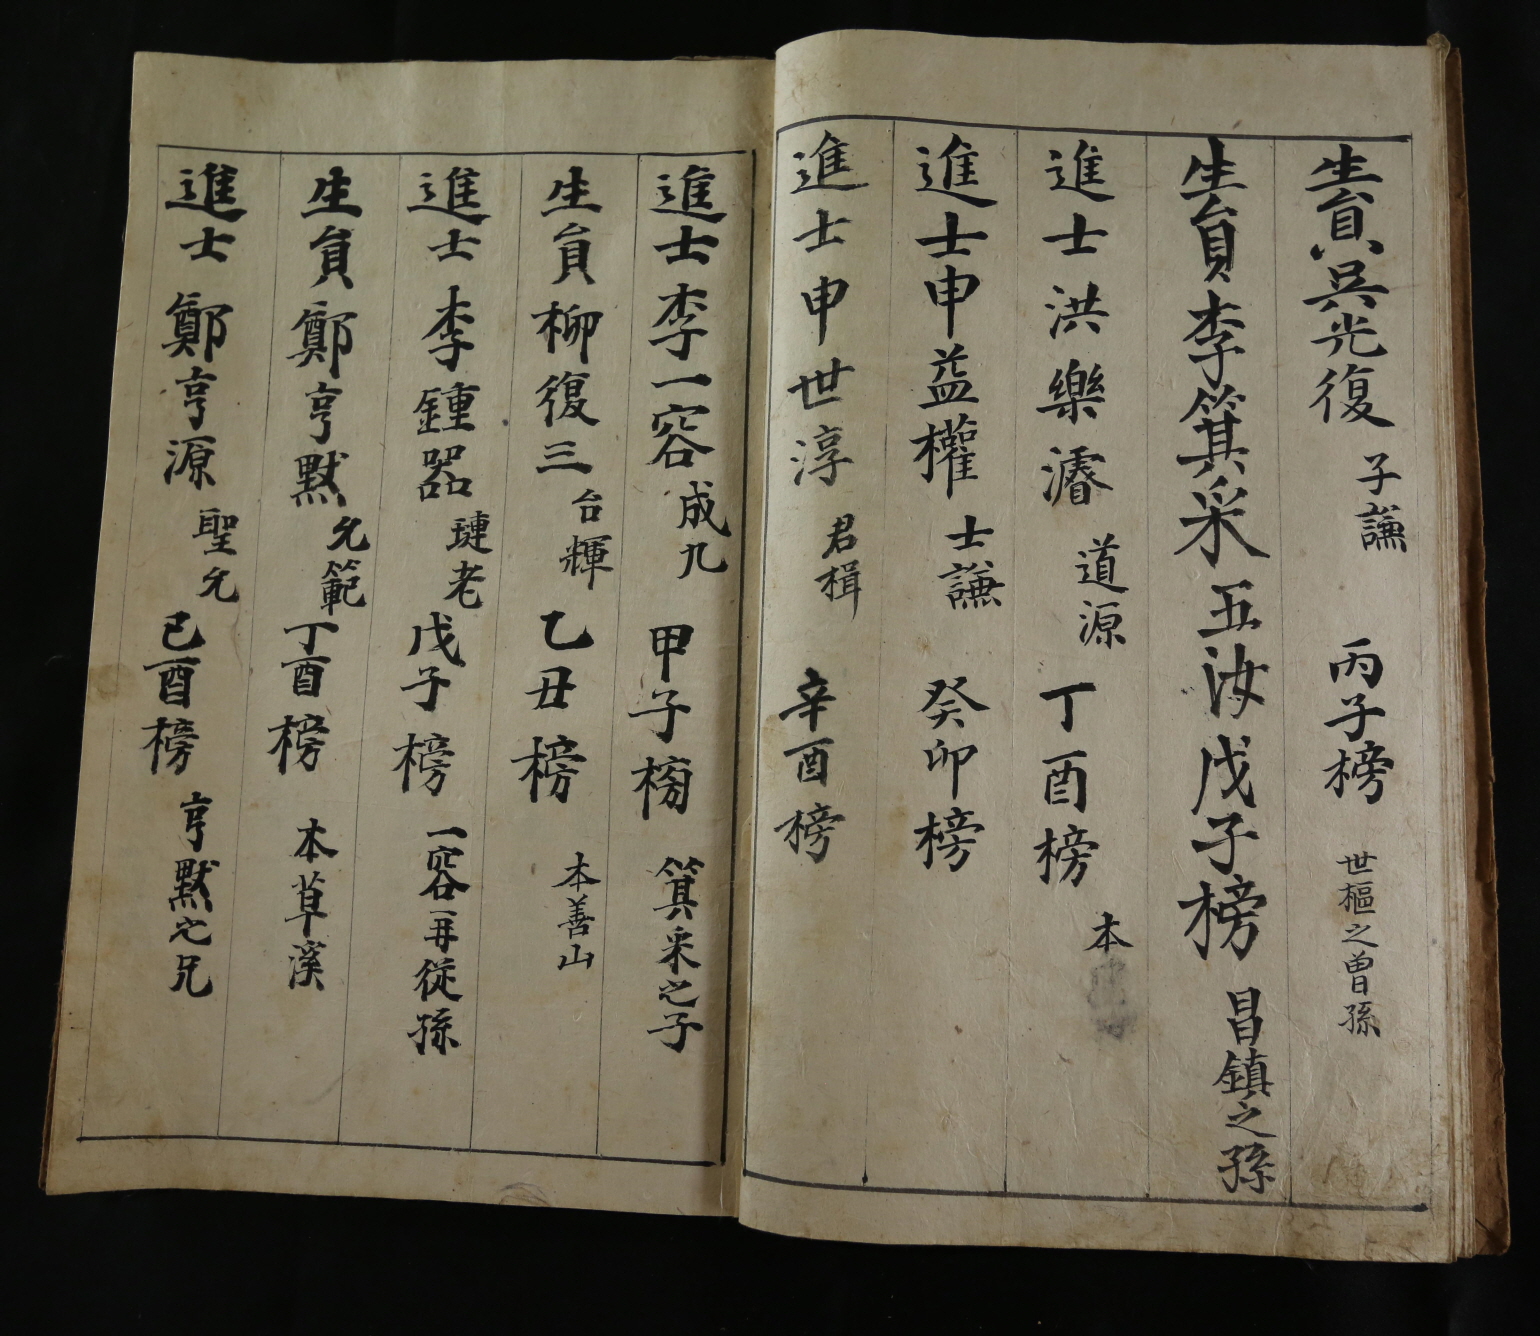 生員吳光復 子謙 丙子榜 世樞之曾孫
生員李箕采 五汝 戊子榜 昌鎮之孫
進士洪樂濬 道源 丁酉榜 本
進士申益權 士謙 癸卯榜
進士申世淳 君楫 辛酉榜
進士李一容 成九 甲子榜 箕采之子
生員柳復三 台輝 乙丑榜 本善山
進士李鍾器 璉老 戊子榜 一容再從孫
生員鄭亨默 允範 丁酉榜 本草溪
進士鄭亨源 聖允 己酉榜 亨默之兄